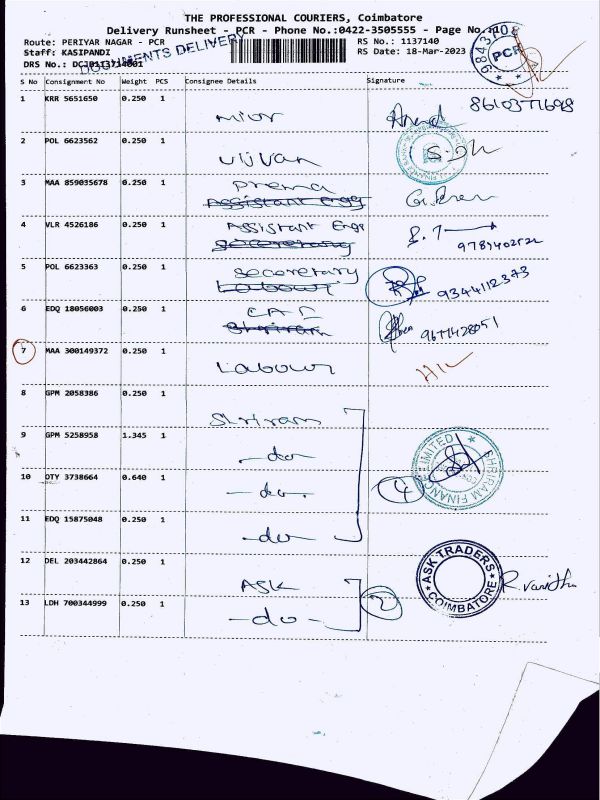 THE PROFESSIONAL COURIERS, Coimbatore
Delivery Runsheet - PCR - Phone No.:0422-3505555 - Page No.:
Route: PERIYAR NAGAR - PCR
RS No.: 1137140
Staff: KASIPANDI
RS Date: 18-Mar-2023
DRS No.:
DOCUMENTS DELIVERY
PCR
S No Consignment No Weight PCS Consignee Details Signature
1 KRR 5651650 0.250 1
8610377698
2 POL 6623562 0.250 1
3 MAA 859035678 0.250 1 Prema
Assistant Engg
4 VLR 4526186 0.250 1 Assistant Engg
secoretary
5 POL 6623363 0.250 1 secoretary
Labour
9344112373
6 EDQ 18056003 0.250 1
Shriram
7 MAA 300149372 0.250 1 Labour
8 GPM 2058386 0.250 1 Shriram
9 GPM 5258958 1.345 1 -do-
10 OTY 3738664 0.640 1 -do-
4
SHRIRAM FINANCE LIMITED
11 EDQ 15875048 0.250 1 -do-
12 DEL 203442864 0.250 1 ASK
ASK TRADERS
COIMBATORE
R. Vanitha
13 LDH 700344999 0.250 1 -do-
2